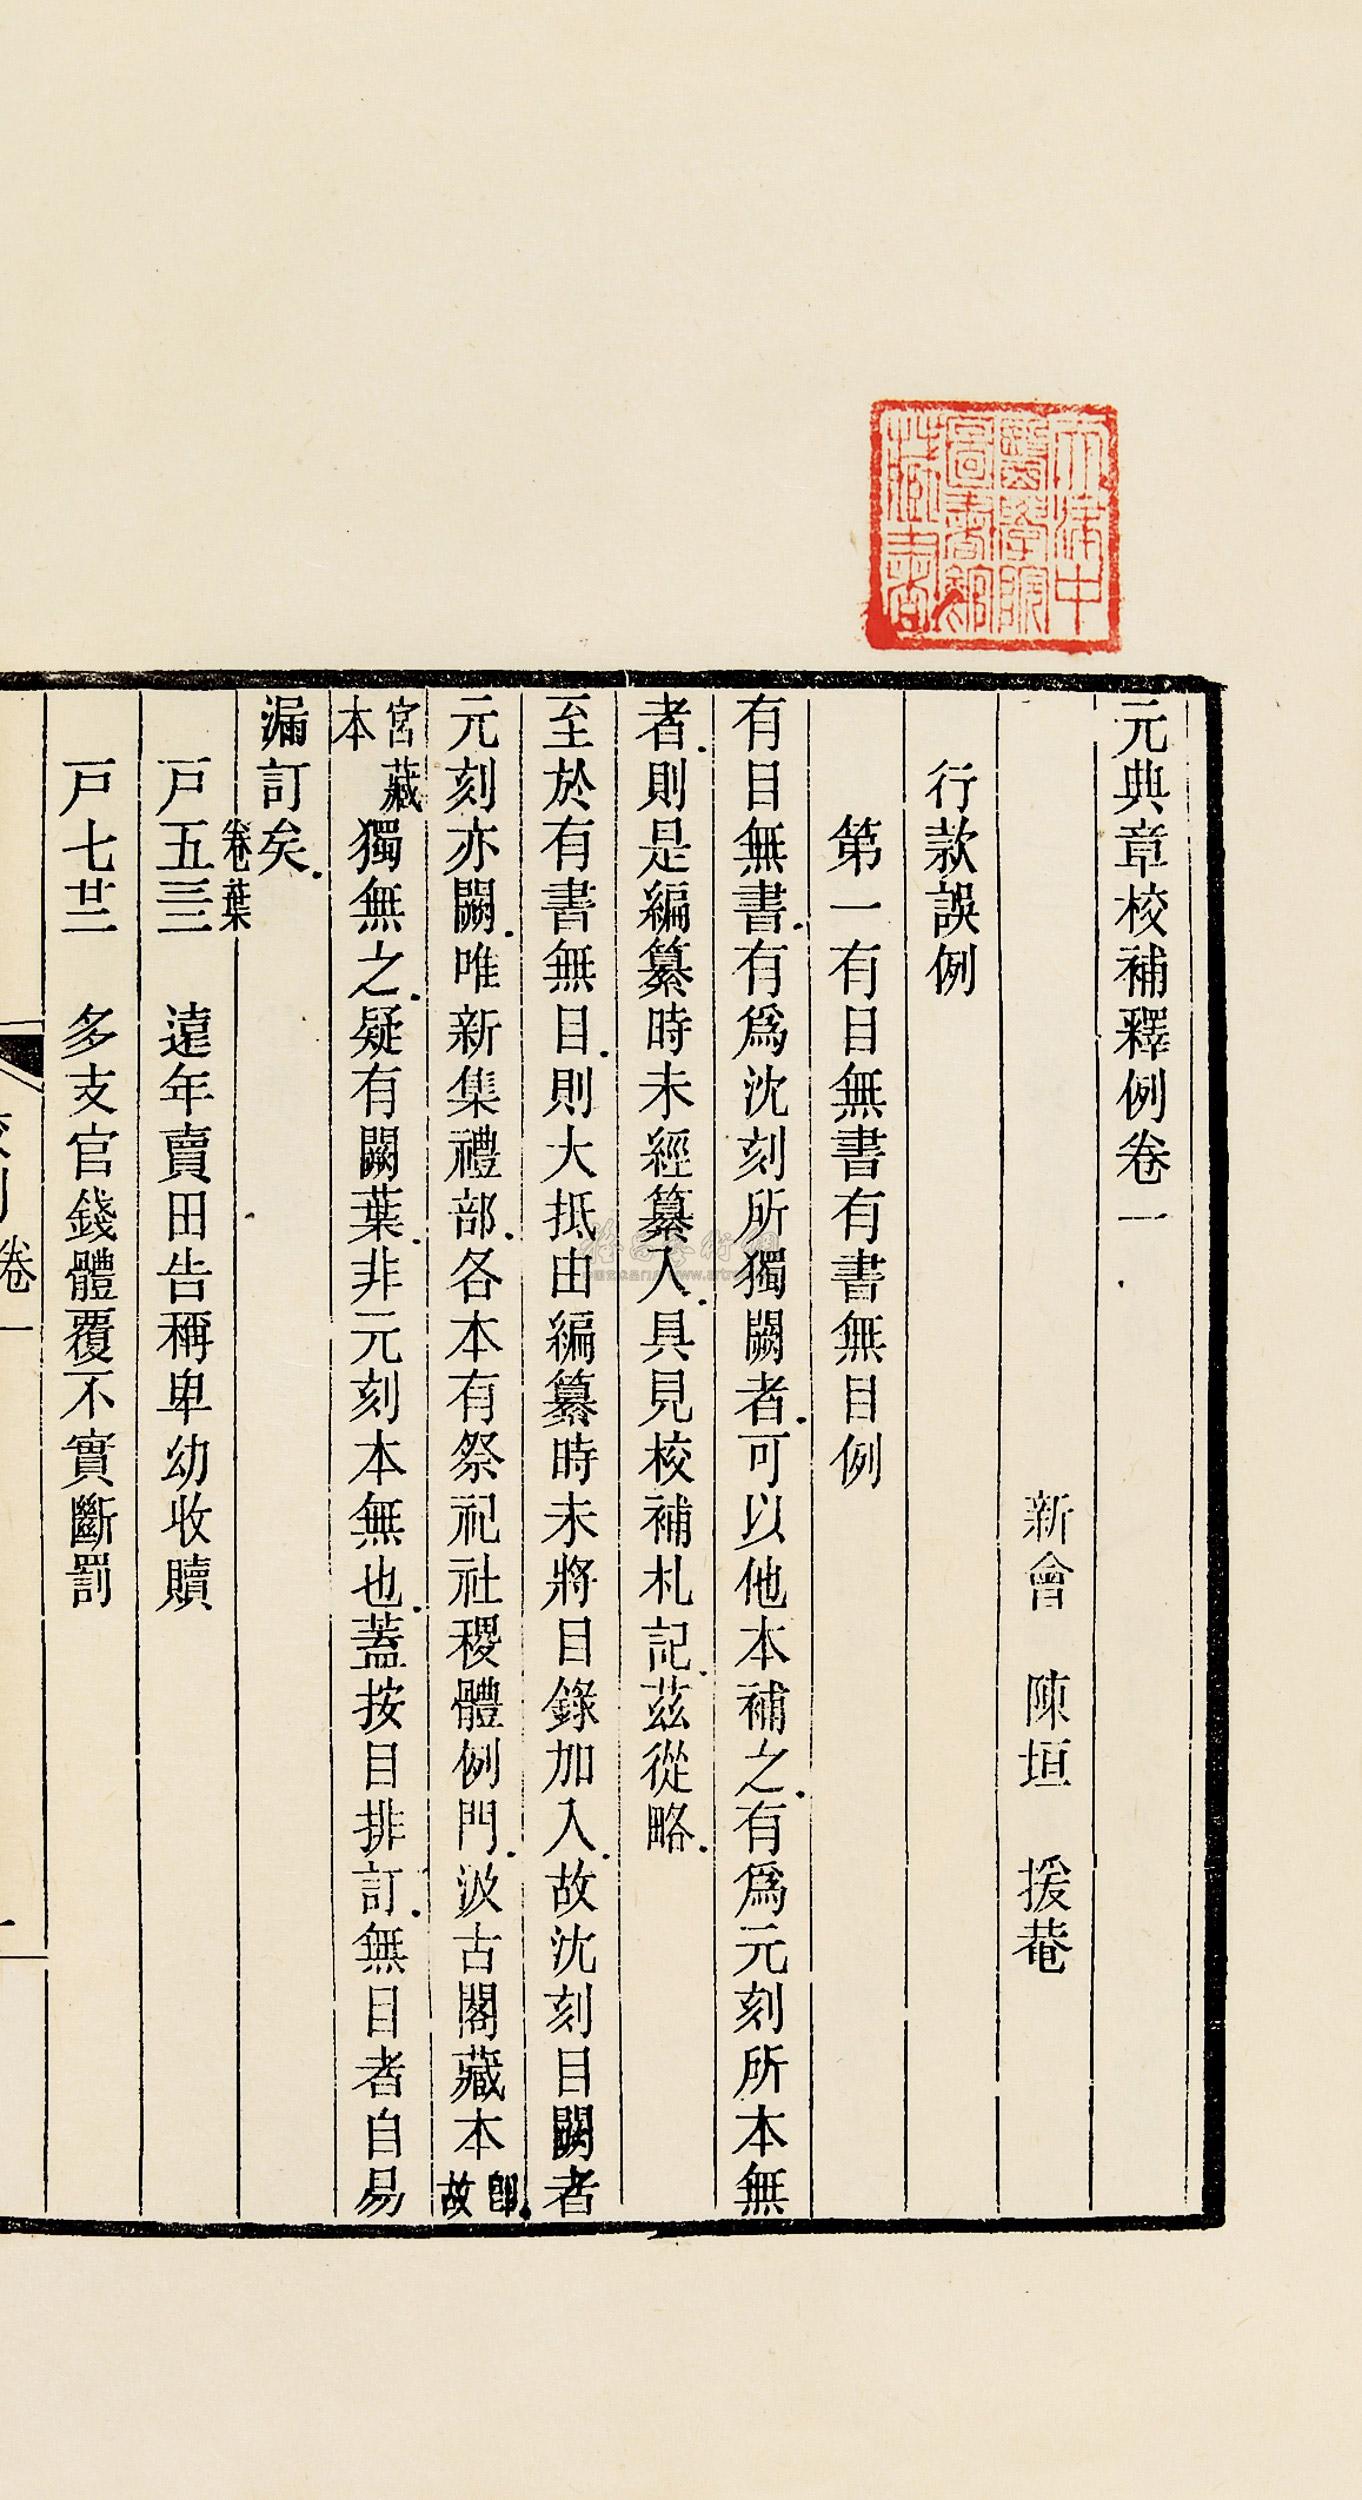 元典章校補釋例卷一
新會 陳垣 援菴
行款誤例
第一有目無書有書無目例
有目無書.有爲沈刻所獨闕者.可以他本補之.有爲元刻所本無
者.則是編纂時未經纂入.具見校補札記.茲從略.
至於有書無目.則大抵由編纂時未將目錄加入.故沈刻目闕者
元刻亦闕.唯新集禮部.各本有祭祀社稷體例門.汲古閣藏本.即故
宮藏本獨無之.疑有闕葉.非元刻本無也.蓋按目排訂.無目者自易
漏訂矣.
卷葉
戶五三三 遠年賣田告稱卑幼收贖
戶七廿二 多支官錢體覆不實斷罰
卷一
天津中
醫學院
圖書館
藏書